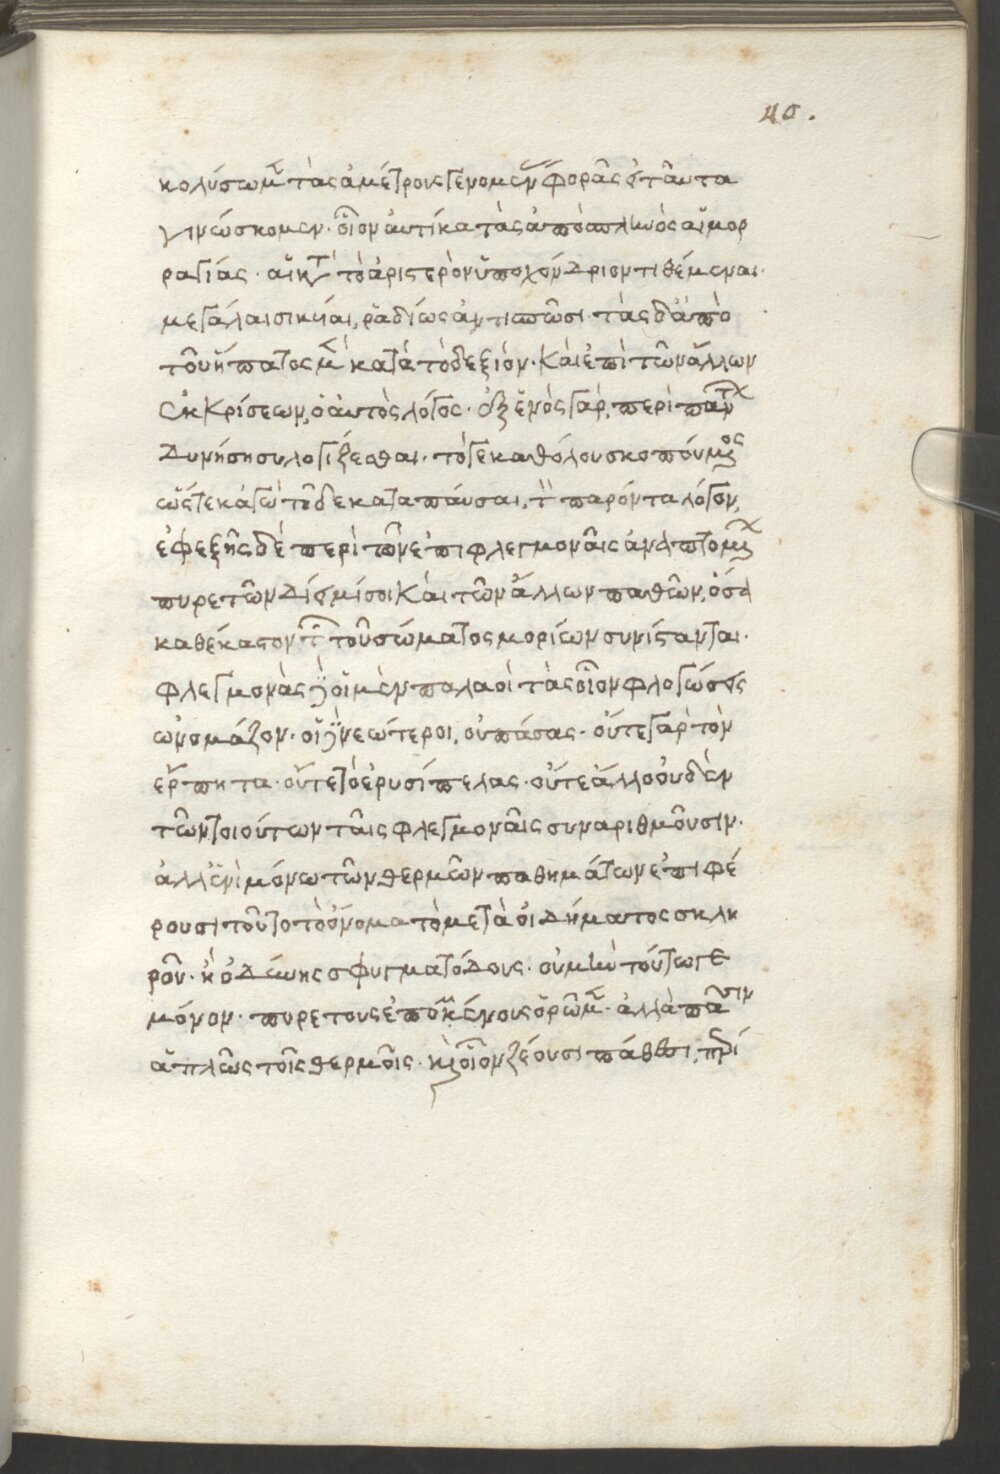 40.
κολύσωμεν τὰς ἀμέτρους γενομένων φορᾶς ἐνταῦτα
γινώσκομεν. οἷον αὐτίκα τὰς ἀπὸ σπληνὸς αἱμορ
ραγίας. αἱ κατὰ τὸ ἀριστερὸν ὑποχόνδριον τιθέμεναι.
μεγάλαι σικύαι, ῥαδίως ἀντισπῶσι. τὰς δ' ἀπὸ
τοῦ ἥπατος μὲν κατὰ τὸ δεξιόν. καὶ ἐπὶ τῶν ἄλλων
ἐκκρίσεων, ὁ αὐτὸς λόγος. ἐξ ἑνὸς γὰρ, περὶ πάντων
δυνήσῃ συλογίζεσθαι. τό γε καθόλου σκοπούμενος
ὥστε κἀγὼ τῇδε καταπαύσαι, τὸν παρόντα λόγον,
ἐφεξῆς δὲ περὶ τῶν ἐπι φλεγμοναῖς ἀναπτομένων
πυρετῶν δίειμί σοι καὶ τῶν ἄλλων παθῶν, ὅσα
καθ' ἕκαστον τῶν τοῦ σώματος μορίων συνίστανται.
φλεγμονὰς δὲ οἱ μὲν παλαοὶ τὰς οἷον φλογώσεις
ὠνομάζον. οἱ δὲ νεώτεροι, οὐ πάσας. οὔτε γὰρ τὸν
ἕρπητα. οὔτε τὸ ἐρυσίπελας. οὔτε ἄλλο οὐδὲν
τῶν τοιούτων ταῖς φλεγμοναῖς συναριθμοῦσιν.
ἀλλ' ἑνὶ μόνω τῶν θερμῶν παθημάτων ἐπιφέ
ρουσι τοῦτο τὸ ὄνομα τὸ μετὰ οἰδήματος σκλη
ροῦ. ἢ ὀδύνης σφυγματόδους. οὐ μὴν τούτω γε
μόνον. πυρετους ἑπομένους ὁρῶμεν. ἀλλὰ πᾶσιν
ἁπλῶς τοῖς θερμοῖς. καὶ οἷον ζέουσι πάθεσι, περὶ